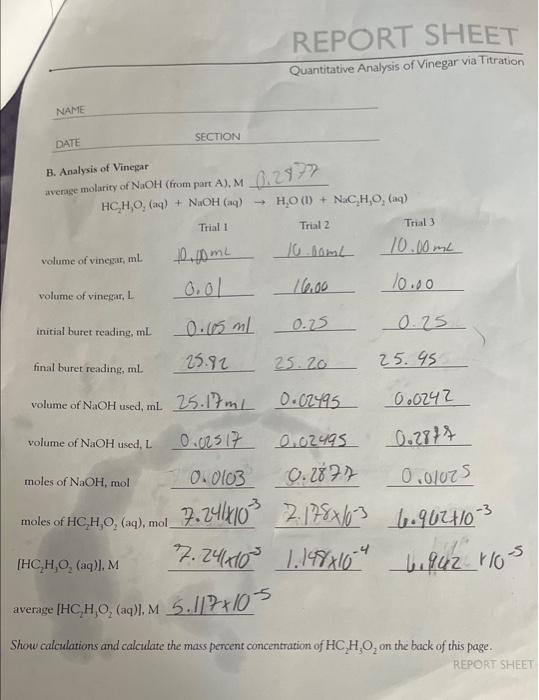 REPORT SHEET
Quantitative Analysis of Vinegar via Titration
NAME
DATE SECTION
B. Analysis of Vinegar
average molarity of NaOH (from part A), M 0.2877
HC₂H₃O₂ (aq) + NaOH (aq) → H₂O (l) + NaC₂H₃O₂ (aq)
Trial 1 Trial 2 Trial 3
volume of vinegar, mL 10.00mL 10.00mL 10.00mL
volume of vinegar, L 0.01 10.00
initial buret reading, mL 0.25 0.25
final buret reading, mL 25.20 25.45
volume of NaOH used, mL 25.17ml 0.02495 0.0242
volume of NaOH used, L 0.02517 0.02495 0.2877
moles of NaOH, mol 0.0103 0.2877 0.01025
moles of HC₂H₃O₂ (aq), mol 7.241x10⁻³ 7.178x10⁻³ 6.962x10⁻³
[HC₂H₃O₂ (aq)], M 7.241x10⁻⁵ 1.148x10⁻⁴
average [HC₂H₃O₂ (aq)], M 5.117x10⁻⁵
Show calculations and calculate the mass percent concentration of HC₂H₃O₂ on the back of this page.
REPORT SHEET